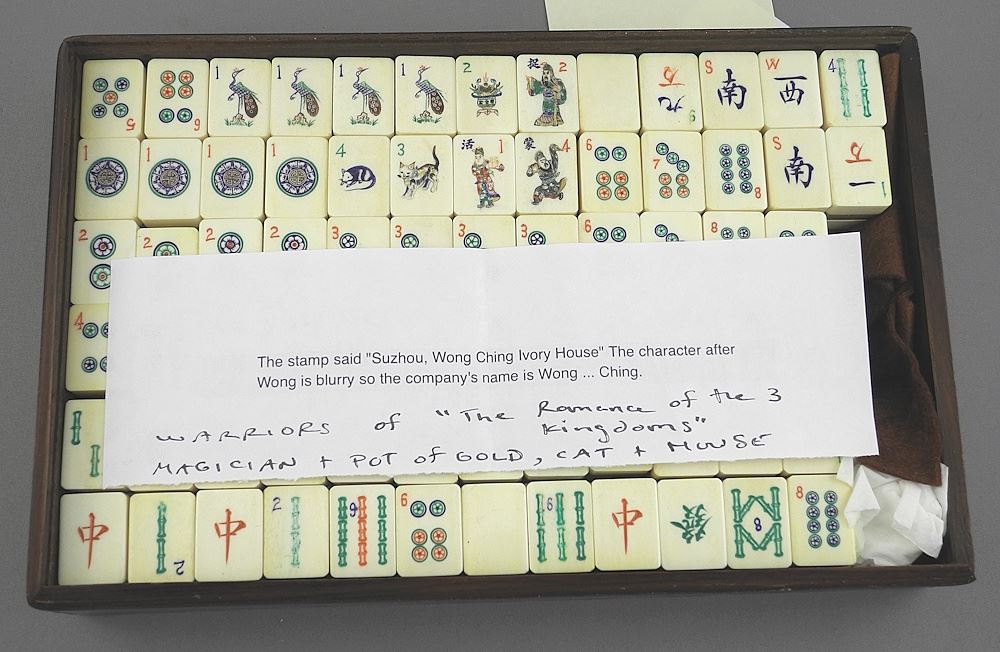 5 6 1 1 1 1 2 捉 2 九 6 S 南 W 西 4
1 1 1 1 4 3 活 1 蒙 4 6 7 8 S 南 一 1
2 2 2 2 3 3 3 3 6 8
4
The stamp said "Suzhou, Wong Ching Ivory House" The character after
Wong is blurry so the company's name is Wong ... Ching.
WARRIORS of "The Romance of the 3
Kingdoms"
MAGICIAN + POT of GOLD, CAT + MOUSE
中 2 中 2 9 6 6 中 發 8 8